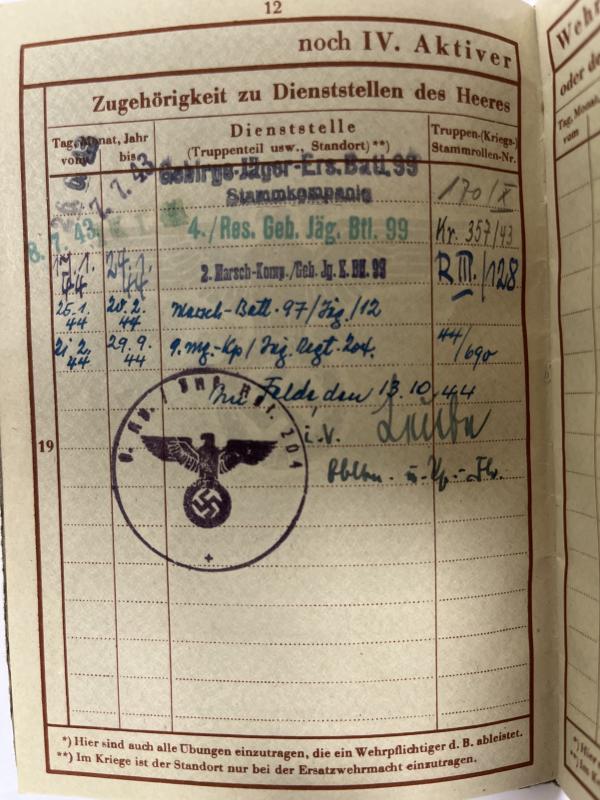 12
noch IV. Aktiver
Zugehörigkeit zu Dienststellen des Heeres
Tag, Monat, Jahr
von bis
Dienststelle
(Truppenteil usw., Standort)**)
Truppen-(Kriegs-)
Stammrollen-Nr.
7. 7. 43
Gebirgs-Jäger-Ers. Batl. 99
Stammkompanie
170/X
8. 7. 43
4./Res. Geb. Jäg. Btl. 99
Kr. 357/43
17.1.44 24.1.44 2. Marsch-Komp./Geb. Jg. E. Btl. 99 R III/128
25.1.44 20.2.44 Marsch-Batl. 97/Jäg./12
21.2.44 29.9.44 9. MG.-Kp/Jäg. Regt. 204. 44/690
Im Felde, den 13.10.44
i.V.
Obltn. u. Kp.-Fhr.
204
19
*) Hier sind auch alle Übungen einzutragen, die ein Wehrpflichtiger d. B. ableistet.
**) Im Kriege ist der Standort nur bei der Ersatzwehrmacht einzutragen.
Wehr
oder de
Tag, Monat,
von
*) Hier
**) Im K